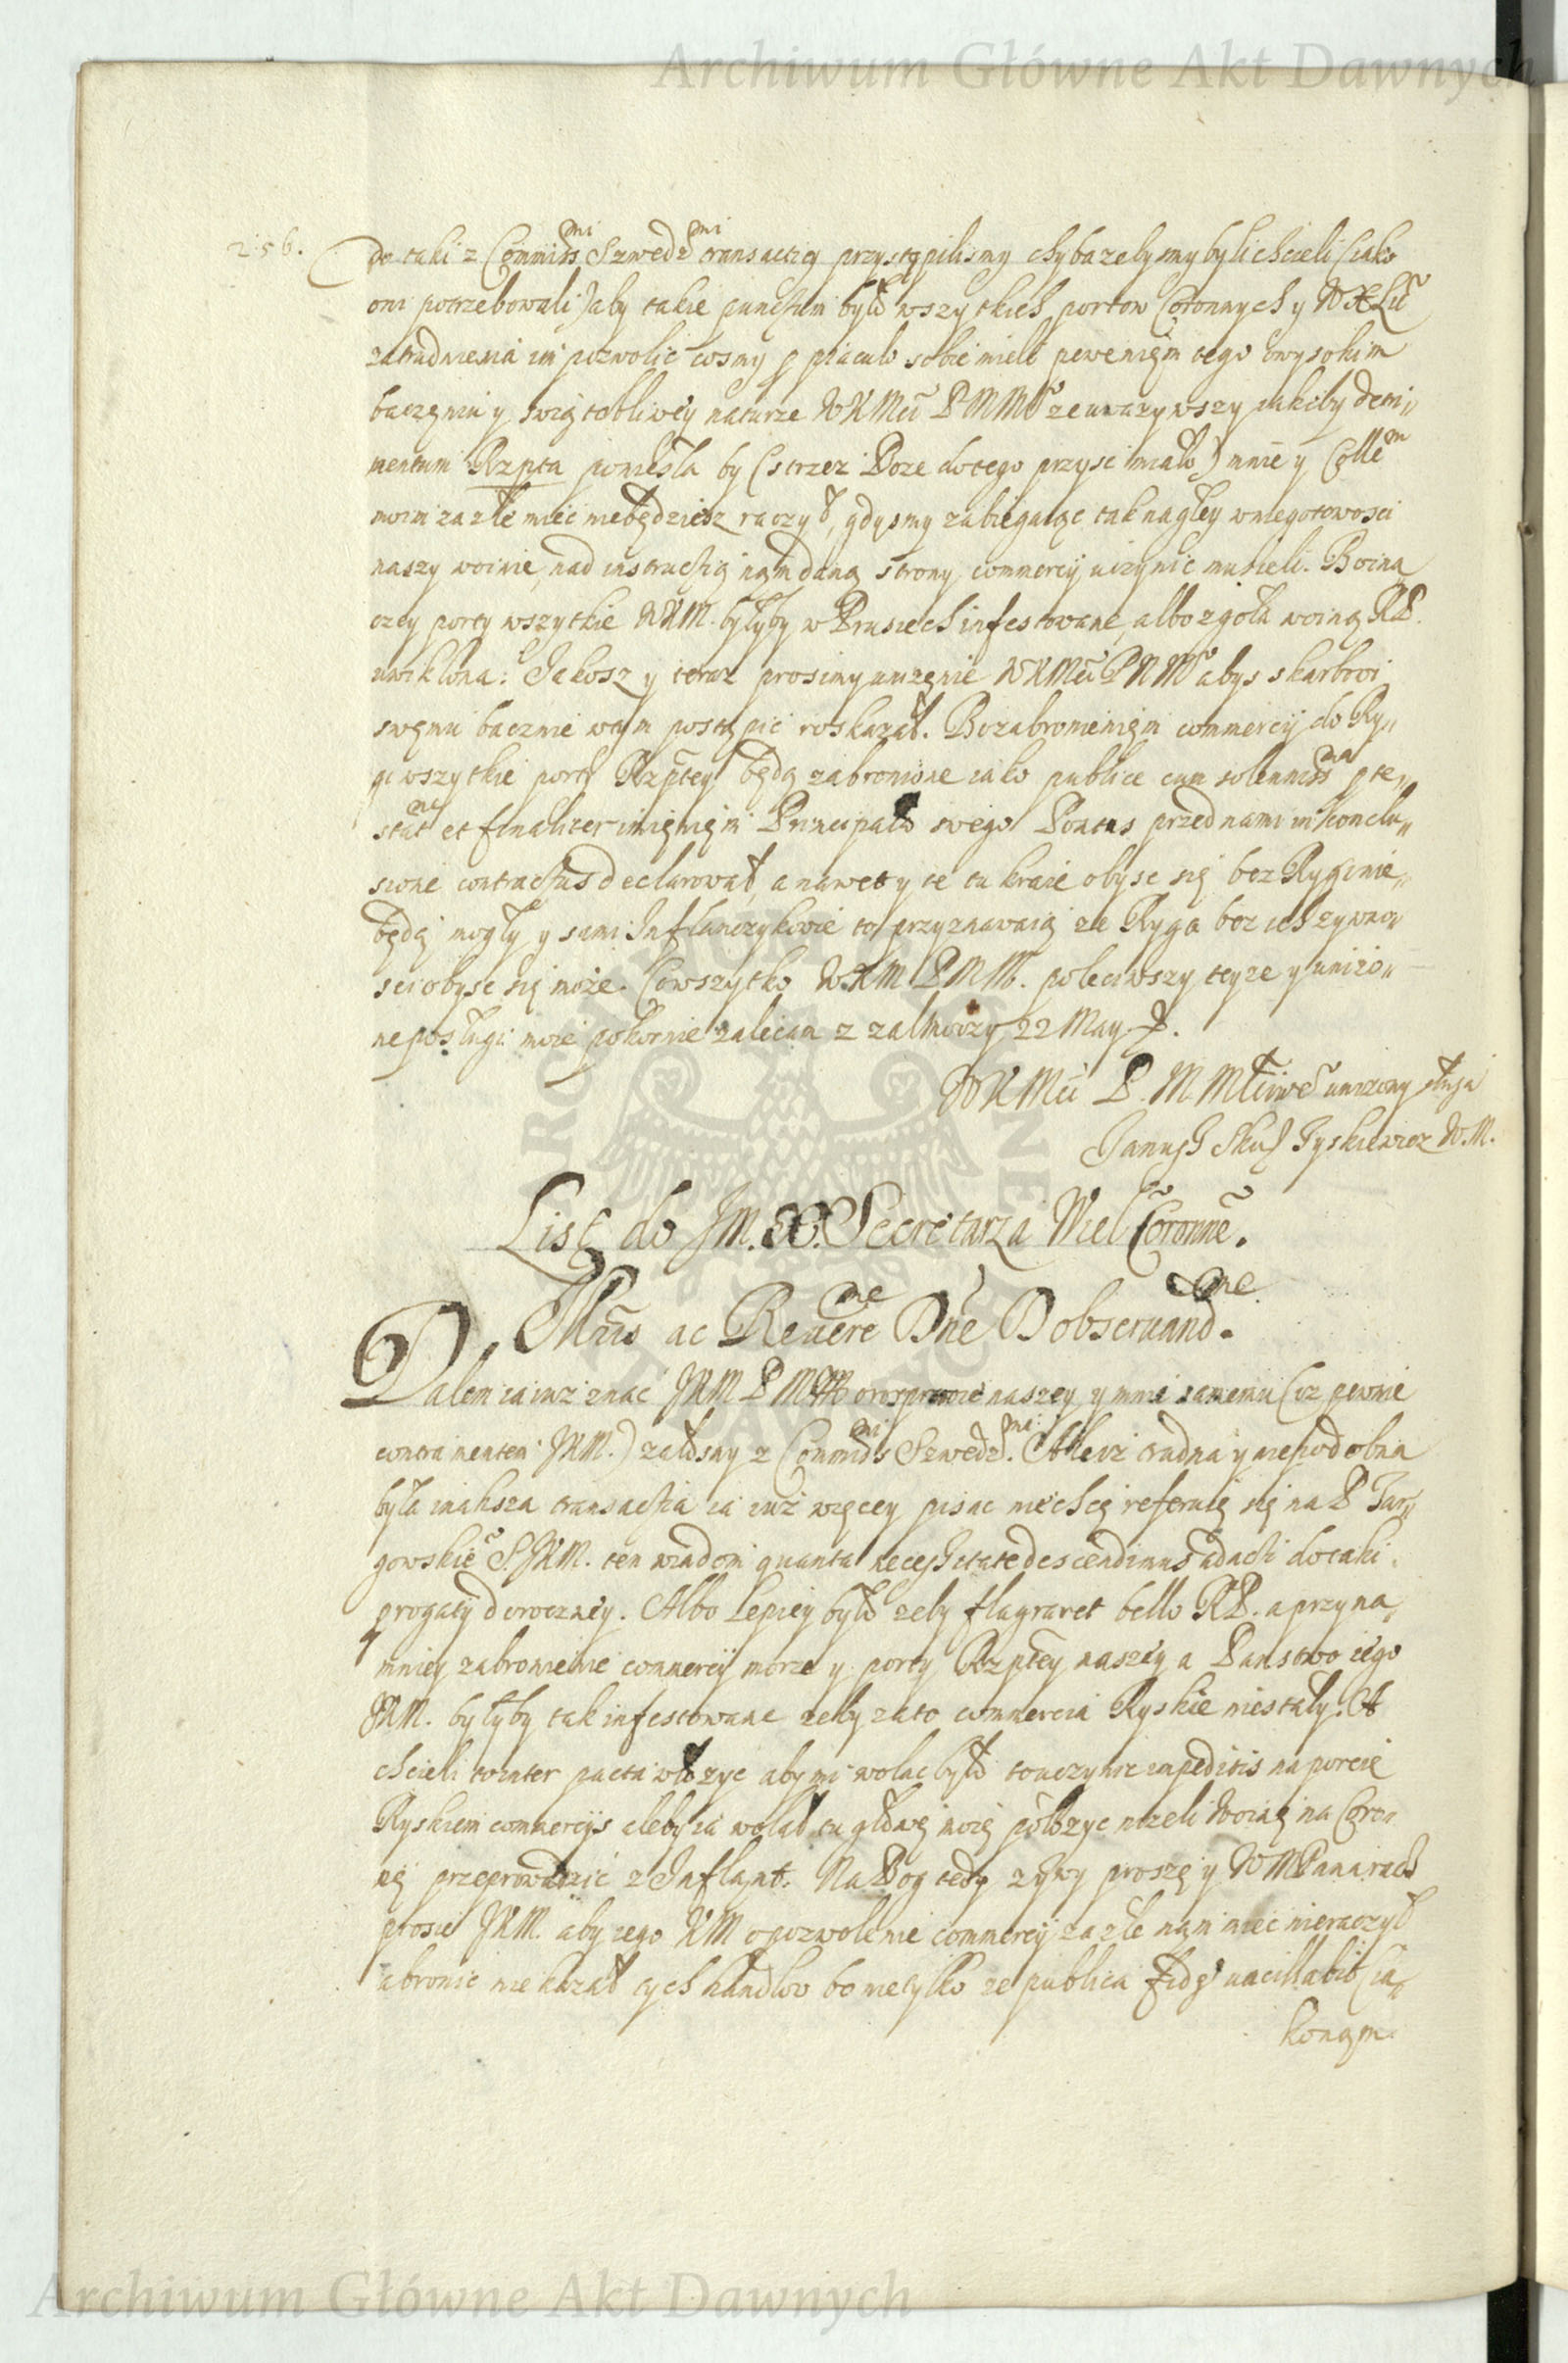 Archiwum Główne Akt Dawnych
256.
do taki z Commiss mi Szwedz mi transactię przystąpilismy chyba zebysmy byli chcieli (iako
oni potrzebowali) aby takie punctum było wszytkich portow Coronnych y WXLit
zatrudnienia im pozwolic cosmy p piaculo sobie mieli pewenięm tego o wysokim
baczęniu y swiątobliwey naturze WKMci PMMo ze uwazywszy iakiby detri„
mentum Rzpta poniesla by (strzez Boze do tego przysc miało) mnie y Colle m
moim za złe miec niebędziesz raczył, gdysmy zabiegaiąc tak nagłey w niegotowosci
naszy woinie, nad instructią nąm daną strony commercij uczynic musieli. Bo ina
czey porty wszytkie WKM. byłyby w Prusiech infestowane, albo zgoła woiną RP.
uwiklona. Jakosz y teraz prosimy unizęnie WKMci PNMo abys skarbowi
swęmu bacznie w tym postąpic roskazał. Bo zabronienięm commercij do Ry„
gi wszytkie porty Rzptey będą zabronione iako publice cum solenniss na pte„
stat ne et finaliter imięnięm Principała swego Pontus przed nami in conclu„
sione contractus declarował, a nawet y te tu kraie obysc się bez Rygi nie„
będą mogły y sami Inflanczykowie to przyznawaią ze Ryga bez ich zywno„
sci obysc się może. Co wszytko WKM PMM. poleciwszy teyze y unizo„
ne posługi moie pokornie zalecam z Zalmoizy 22 May.
WKMci P. M. Młciwe unizony sługa
Janusz Skum Tyskiewicz W.M.
List do JM. X. Secretarza Wiel Coronne.
Illrius ac Reuere me Dne D obseruand me.
Dałem ia iuz znac JKM P M M o rosprawie naszey y mnie samemu (iz pewnie
contra mentem JKM.) załosny z Commiss mi Szwedz mi. Ale iz trudna y niepodobna
była inaksza transactia ia iuż więcey pisac niechcę referuię się na P Tar„
gowskie S. JKM. ten wiadom quanta necessitate descendimus adacti do taki
progaty doroczney. Albo lepiey było zeby flagraret bello RP. a przyna„
mniey zabronienie commercij morze y porty Rzptey naszey a Panstwo iego
JKM. byłyby tak infestowane zeby za to commercia Ryskie niestały. A
chcieli to inter pacta włozyc aby mi wolno było to uczynic impeditis na porcie
Ryskiem commercijs aleby ia wolał tu głowę moię położyc nizeli woinę na Coro„
nę przeprowadzic z Inflant. Na Bog tedy zywy proszę y WMPana racz
prosic JKM. aby iego KM o pozwolenie commercij za złe nąm miec nieraczył
a bronic nie kazał tych handlow bo nie tylko ze publica fides vacillabit (ia„
konąm
Archiwum Główne Akt Dawnych